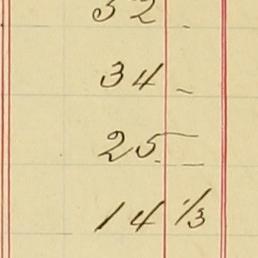 32 -
34 -
25 -
14 1/3